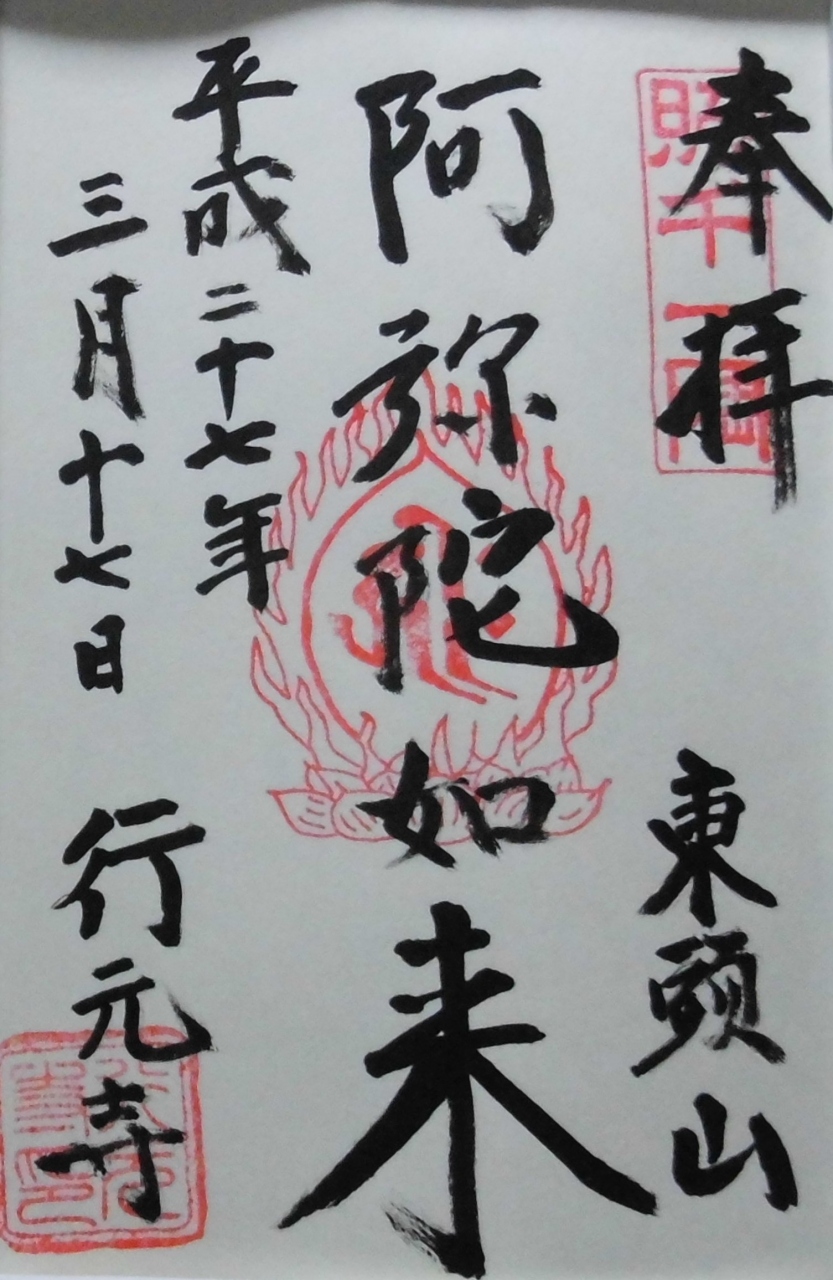 奉拝
東頭山
阿弥陀如来
平成二十七年
三月十七日
行元寺
照千一隅